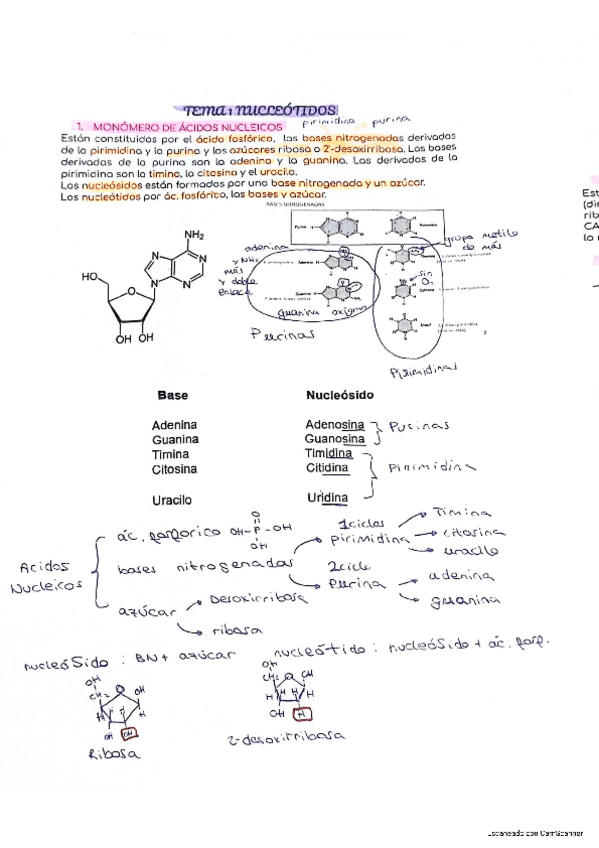 TEMA 1 NUCLEÓTIDOS
pirimidina purina
1. MONÓMERO DE ÁCIDOS NUCLEICOS
Están constituidos por el ácido fosfórico, las bases nitrogenadas derivadas
de la pirimidina y la purina y los azúcares ribosa o 2'-desoxirribosa. Las bases
derivadas de la purina son la adenina y la guanina. Las derivadas de la
pirimidina son la timina, la citosina y el uracilo.
Los nucleósidos están formados por una base nitrogenada y un azúcar.
Los nucleótidos por ác. fosfórico, las bases y azúcar.
BASES NITROGENADAS
Purina
Pirimidina
grupo metilo
de más
adenina
y NH₂
más
y doble
enlace
Adenina
Guanina
guanina oxígeno
sin
O₂
Citosina
Uracilo
Purinas
Pirimidinas
NH₂
N N
N N
HO
O
OH OH
Base Nucleósido
Adenina Adenosina
Guanina Guanosina
Purinas
Timina Timidina
Citosina Citidina
Pirimidina
Uracilo Uridina
Ácidos
Nucleicos
ác. fosforico OH-P-OH
O
OH
bases nitrogenadas
1 ciclos
pirimidina
Timina
citosina
uracilo
2 ciclo
Purina
adenina
guanina
azúcar
Desoxirribosa
ribosa
nucleóSido : BN + azúcar
nucleótido : nucleóSido + ác. fosf.
OH
CH₂ O OH
H H H
OH OH
Ribosa
OH
CH₂ O OH
H H H H
OH H
2-desoxirribosa
Est
(di
rib
CA
lo
Escaneado con CamScanner